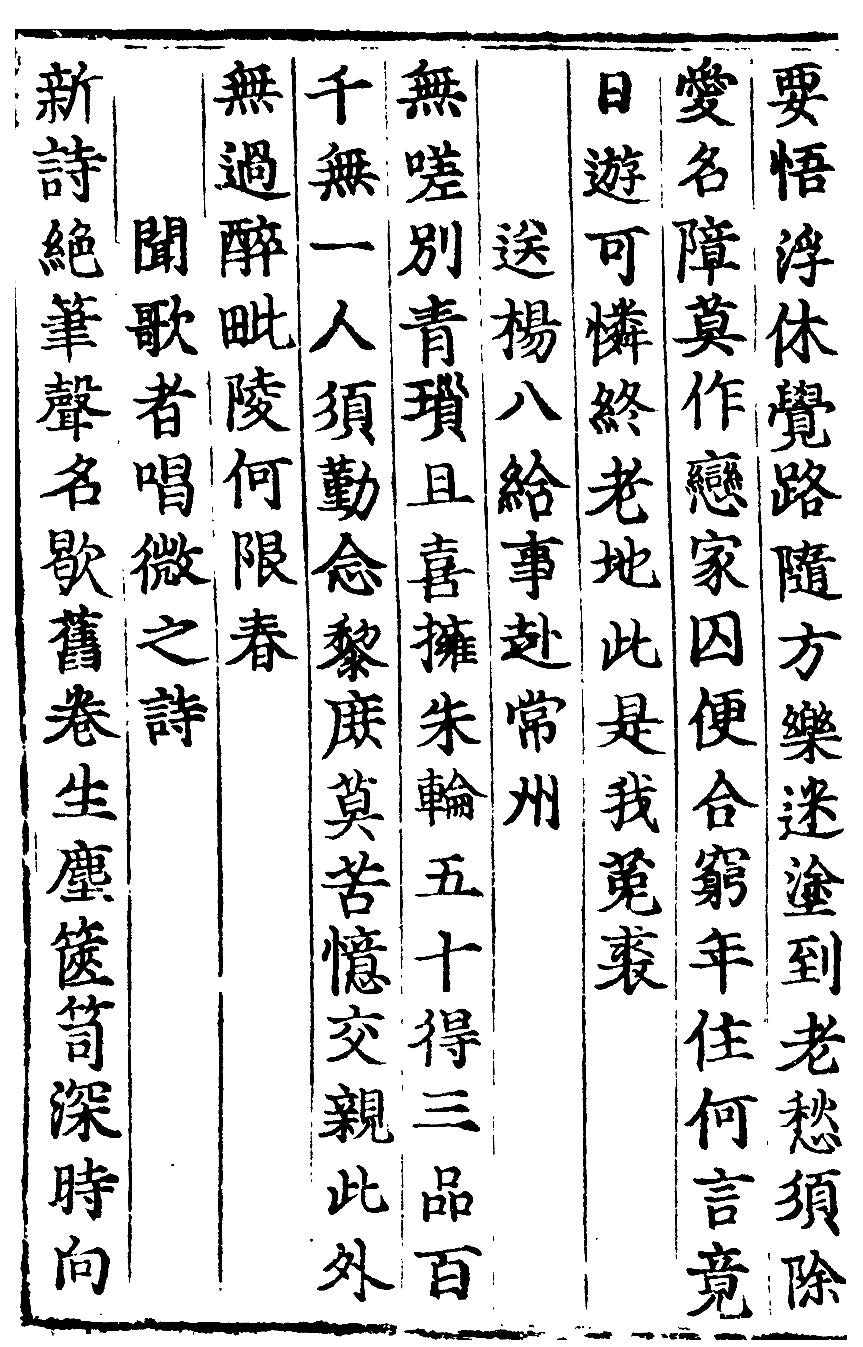 要悟浮休覺路隨方樂迷塗到老愁須除
愛名障莫作戀家囚便合窮年住何言竟
日遊可憐終老地此是我菟裘
送楊八給事赴常州
無嗟別青瑣且喜擁朱輪五十得三品百
千無一人須勤念黎庶莫苦憶交親此外
無過醉毗陵何限春
聞歌者唱微之詩
新詩絕筆聲名歇舊卷生塵篋笥深時向